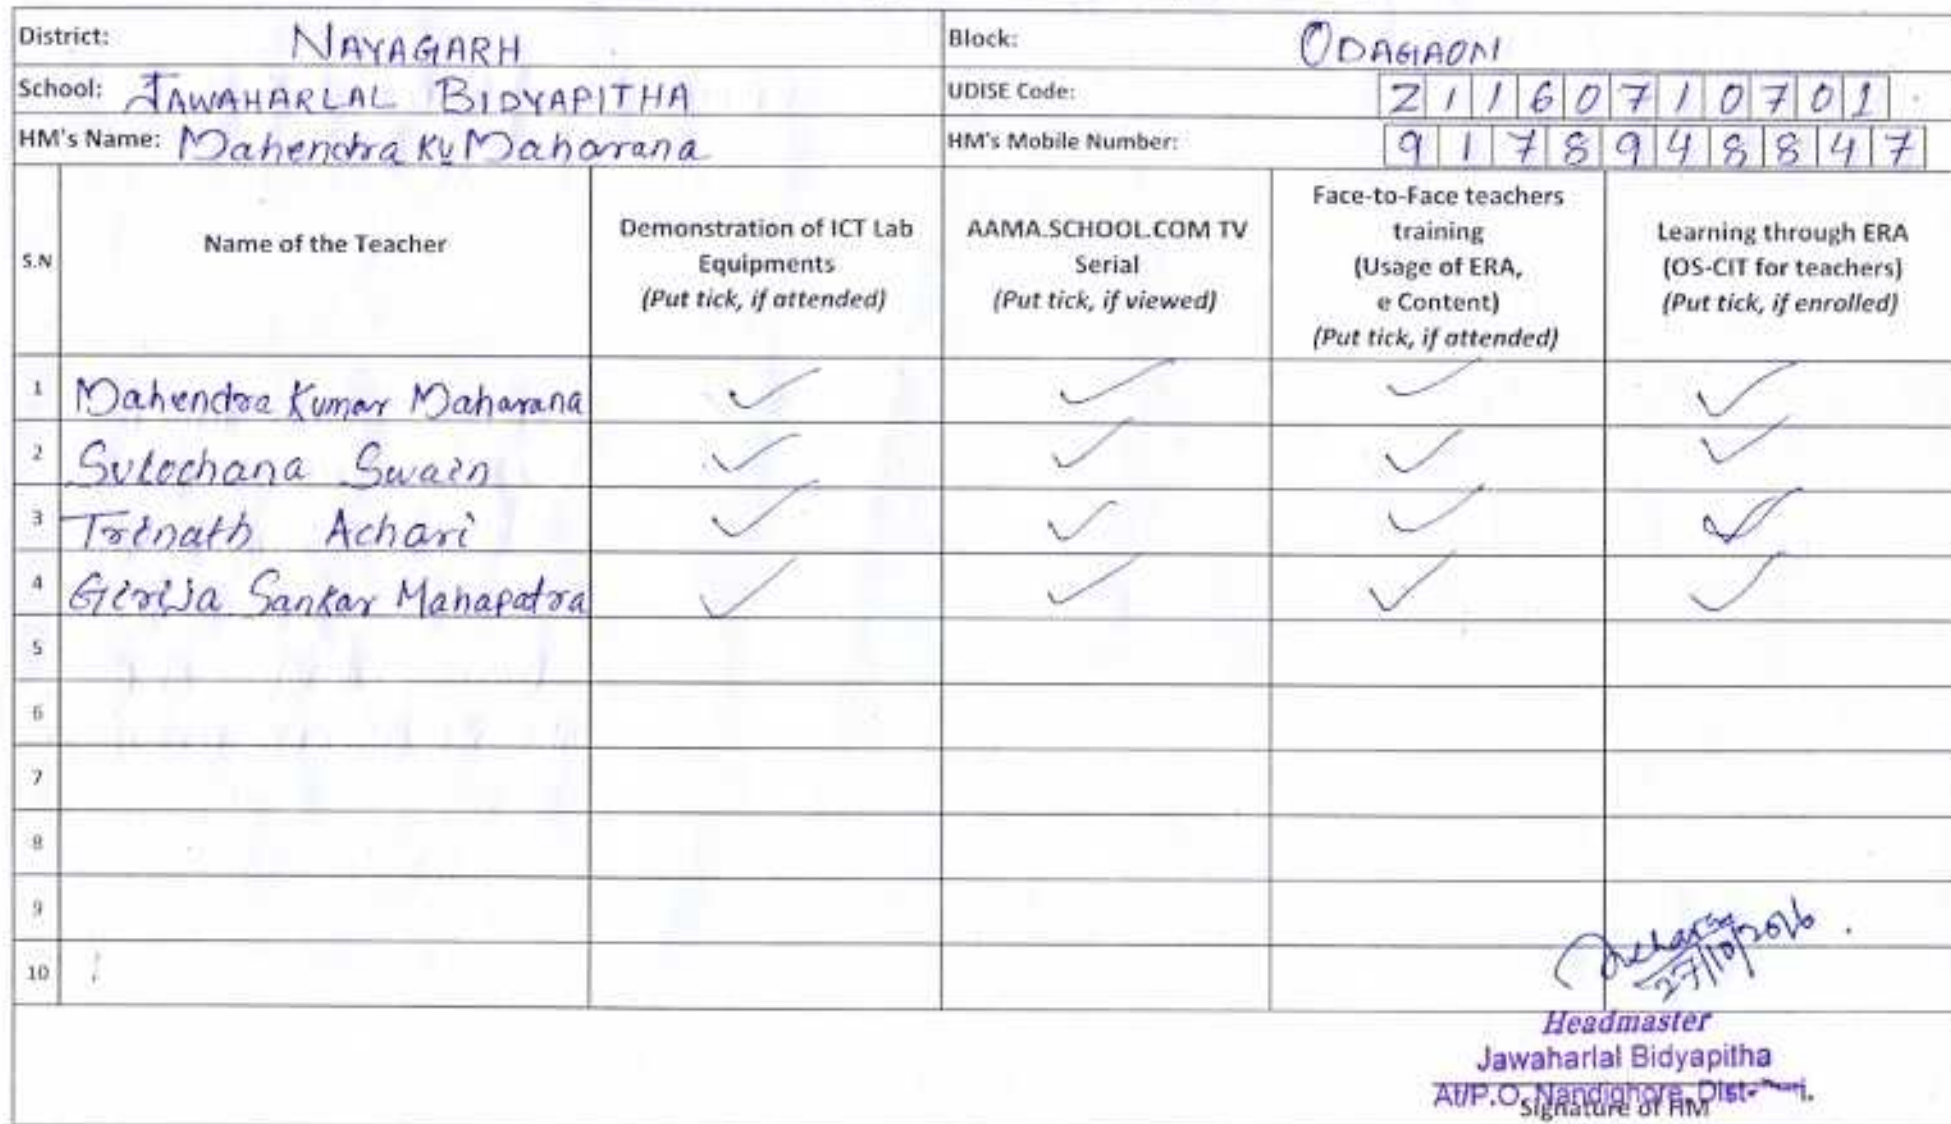 District: NAYAGARH Block: ODAGAON
School: JAWAHARLAL BIDYAPITHA UDISE Code: 21160710701
HM's Name: Mahendra Ku Maharana HM's Mobile Number: 9178948847
S.N Name of the Teacher Demonstration of ICT Lab Equipments (Put tick, if attended) AAMA.SCHOOL.COM TV Serial (Put tick, if viewed) Face-to-Face teachers training (Usage of ERA, e Content) (Put tick, if attended) Learning through ERA (OS-CIT for teachers) (Put tick, if enrolled)
1 Mahendra Kumar Maharana ✓ ✓ ✓ ✓
2 Sulochana Swain ✓ ✓ ✓ ✓
3 Trinath Achari ✓ ✓ ✓ ✓
4 Girija Sankar Mahapatra ✓ ✓ ✓ ✓
5
6
7
8
9
10
27/10/2016
Headmaster
Jawaharlal Bidyapitha
At/P.O. Nandighore, Dist-
Signature of HM